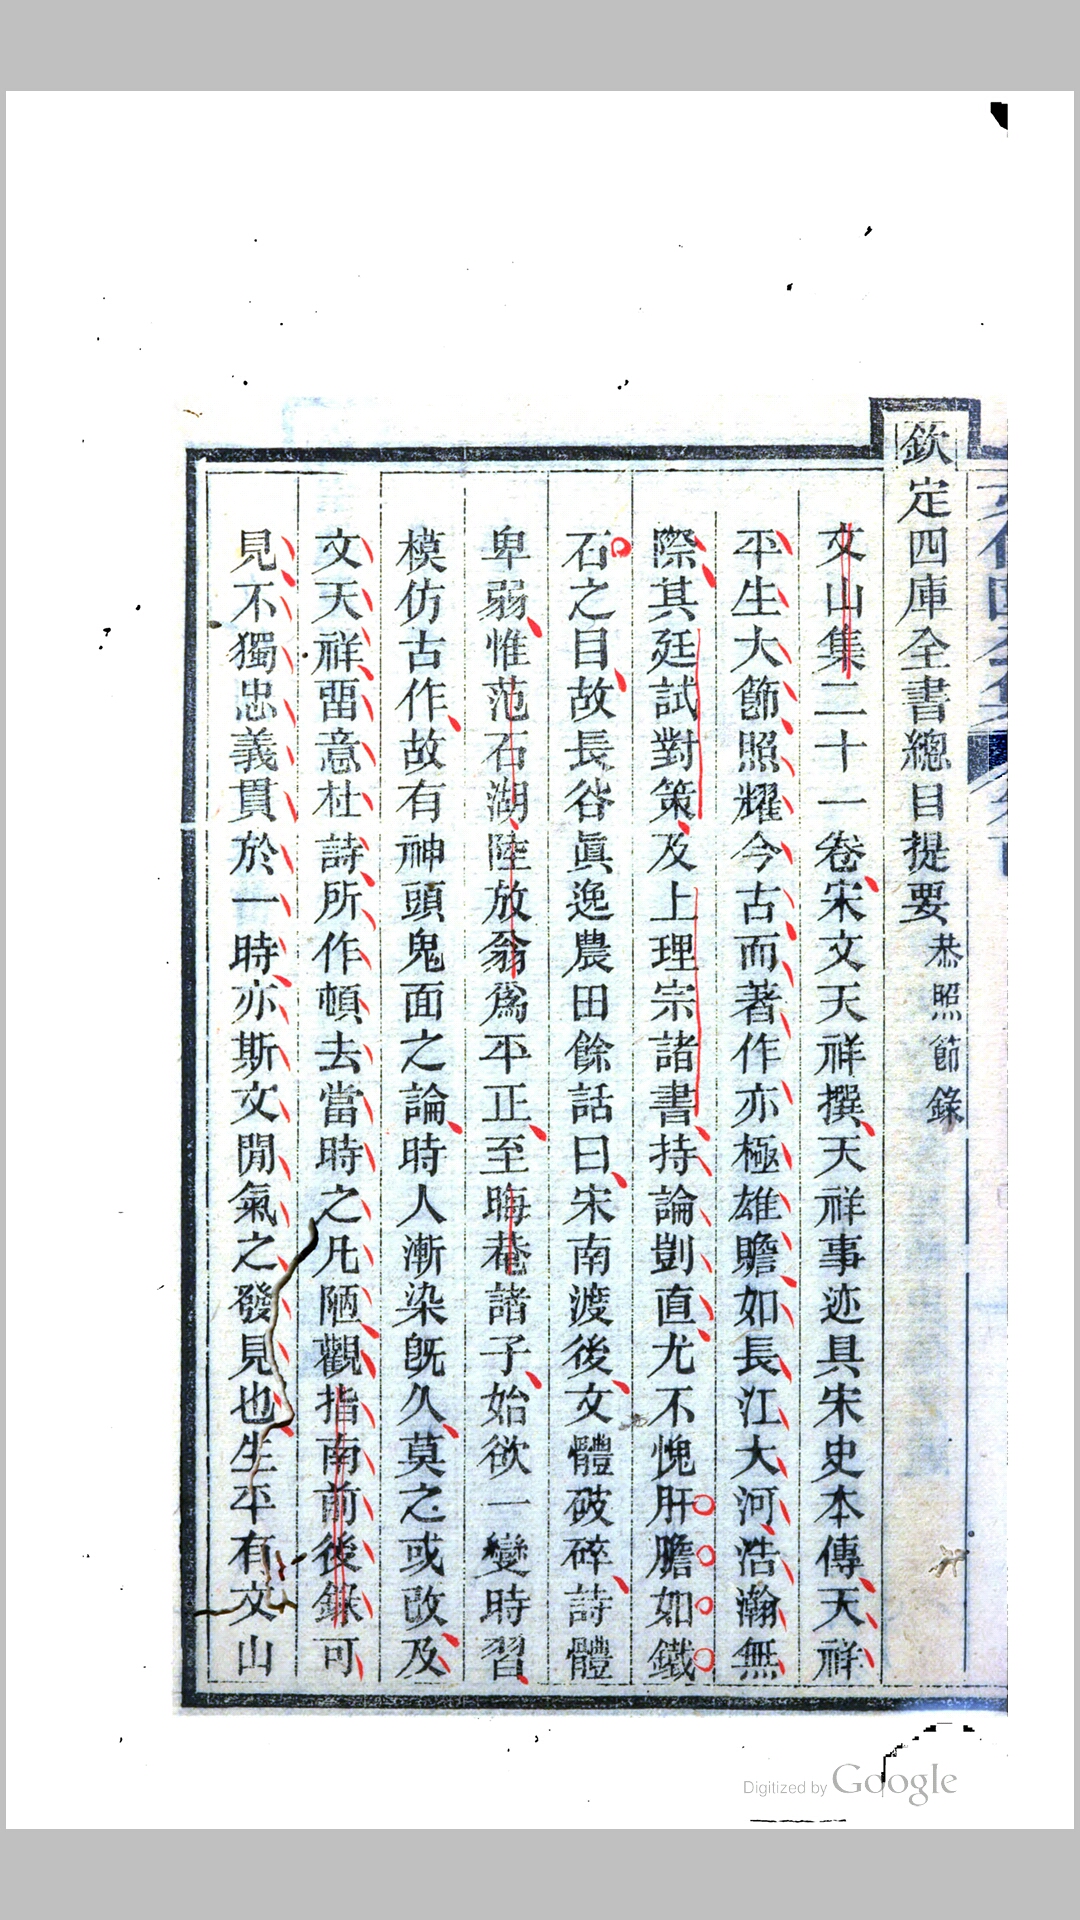 欽定四庫全書總目提要恭照節錄
文山集二十一卷宋文天祥撰天祥事迹具宋史本傳天祥
平生大節照耀今古而著作亦極雄贍如長江大河浩瀚無
際其廷試對策及上理宗諸書持論剴直尤不愧肝膽如鐵
石之目故長谷眞逸農田餘話曰宋南渡後文體破碎詩體
卑弱惟范石湖陸放翁爲平正至晦菴諸子始欲一變時習
模仿古作故有神頭鬼面之論時人漸染旣久莫之或改及
文天祥畱意杜詩所作頓去當時之凡陋觀指南前後錄可
見不獨忠義貫於一時亦斯文閒氣之發見也生平有文山
Digitized by Google